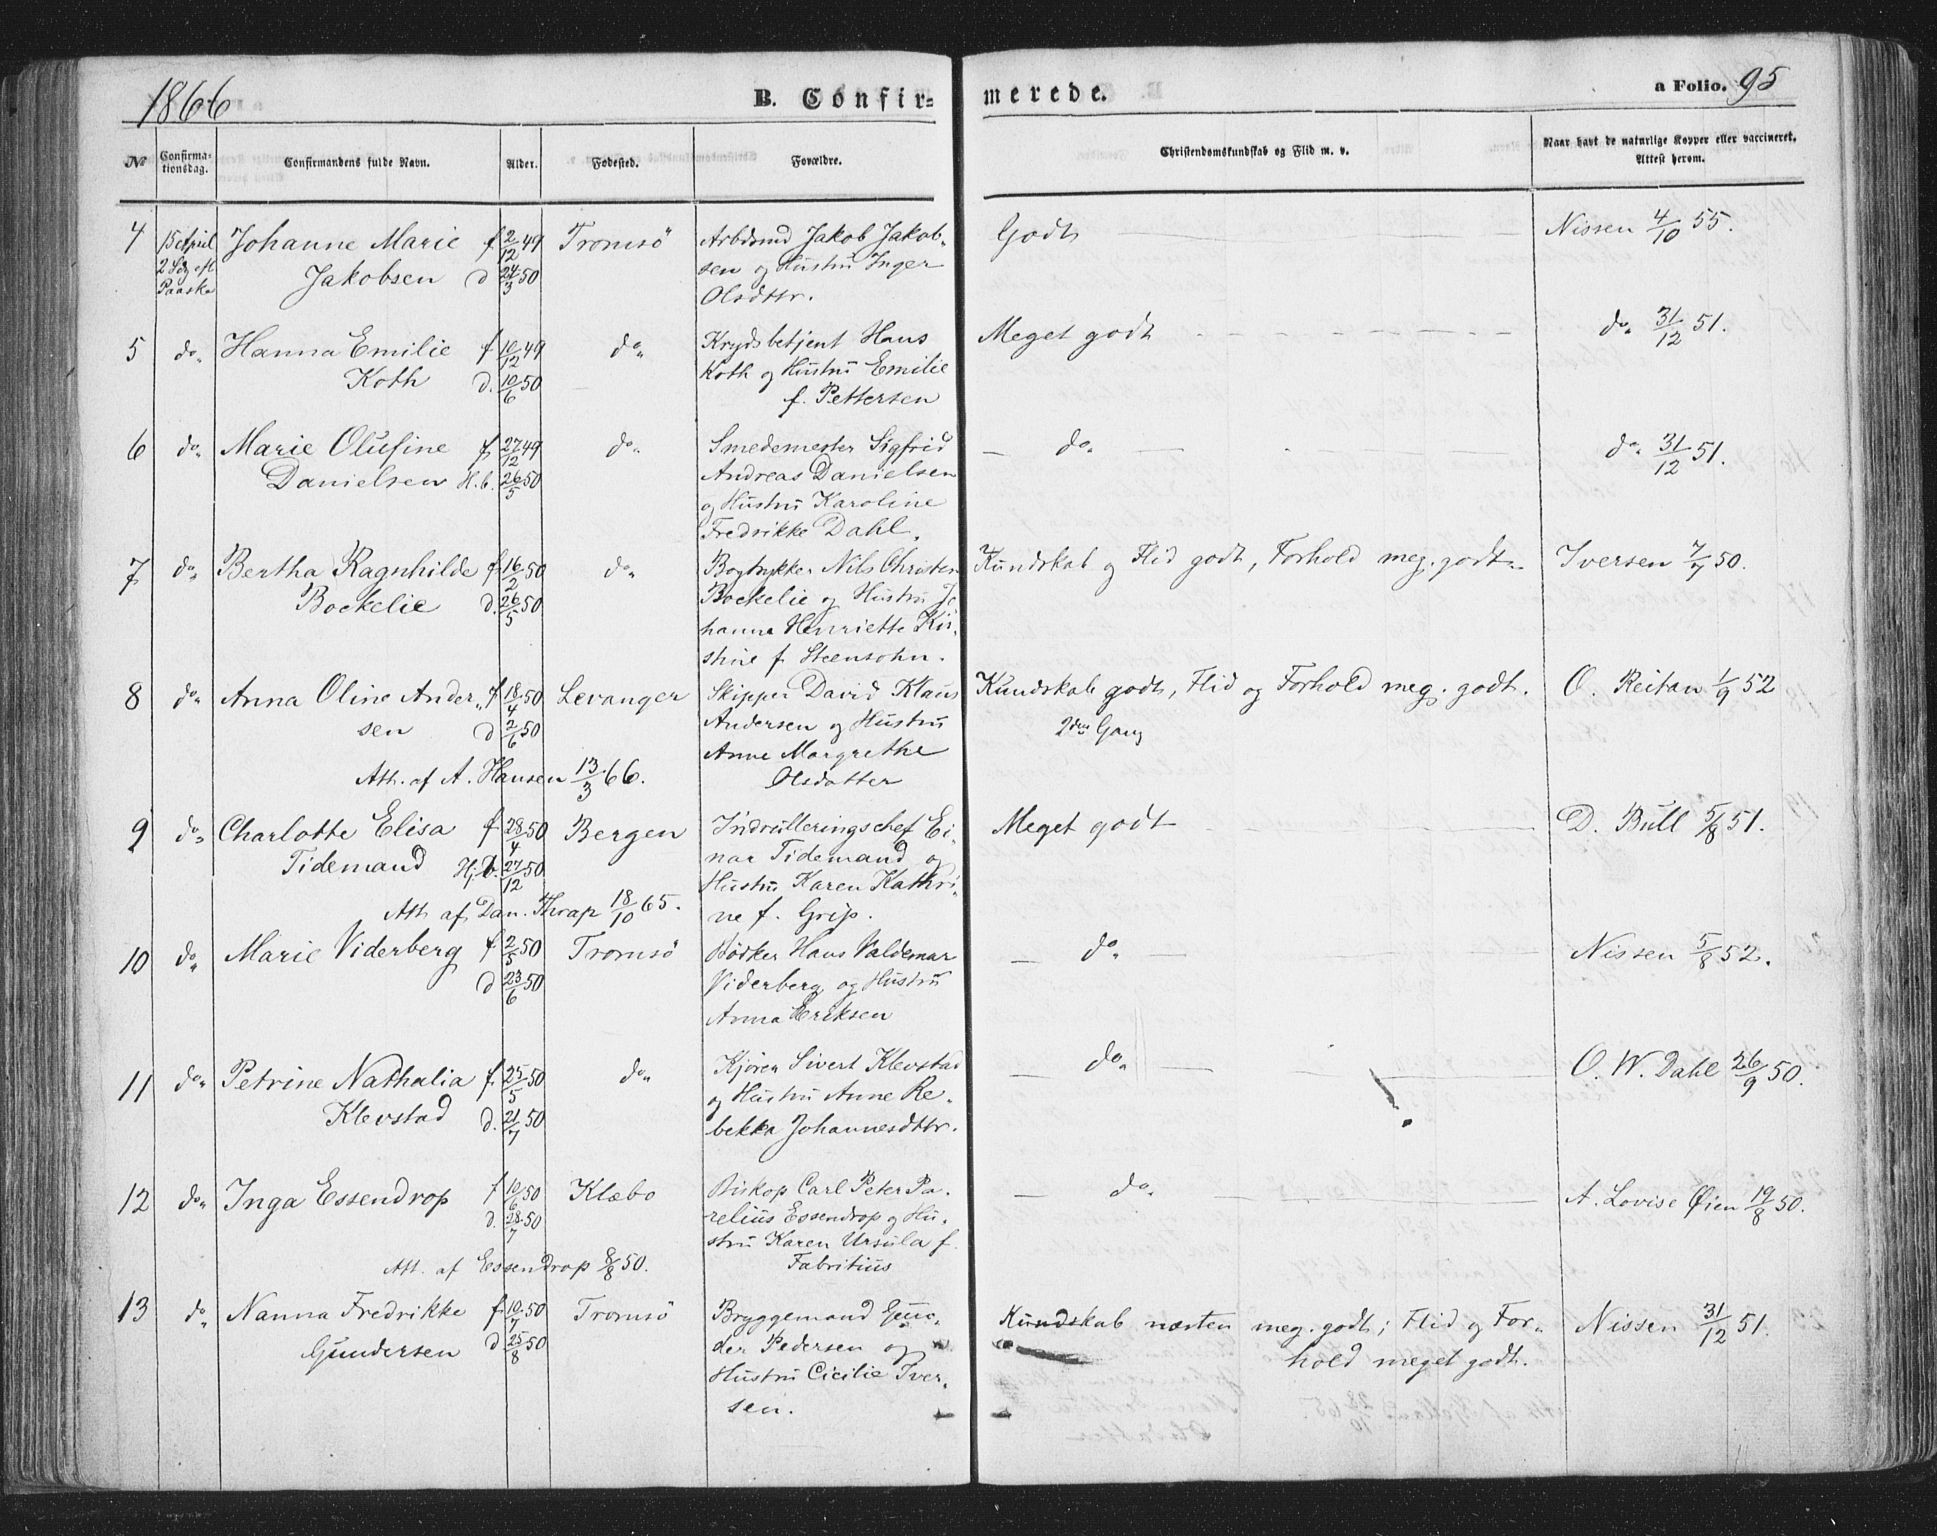 1866
B. Confir-
merede.
a Folio. 95
No
Confirma-
tionsdag.
Confirmandens fulde Navn.
Alder.
Fødested.
Forældre.
Christendomskundskab og Flid m. v.
Naar havt de naturlige Kopper eller vaccineret.
Attest herom.
4 15 April Johanne Marie f 2/12 49 Tromsö Arbdsmd Jakob Jakob- Godt Nissen 4/10 55.
2 Sög eft Jakobsen d 24/3 50 sen og Hustru Inger
Paaske Olsdttr.
5 do Hanna Emilie f 10/12 49 do Krydsbetjent Hans Meget godt do 31/12 51.
Koth d. 10/6 50 Koth og Hustru Emilie
f. Pettersen
6 do Marie Olufine f 27/12 49 do Smedemester Sigfrid do do 31/12 51.
Danielsen H.b. 26/5 50 Andreas Danielsen
og Hustru Karoline
Fredrikke Dahl.
7 do Bertha Ragnhilde f 16/2 50 do Bogtrykker Nils Christen Kundskab og Flid godt, Forhold meg. godt Iversen 7/7 50.
Bockelie d. 26/5 50 Bockelie og Hustru Jo
hanne Henriette Kir-
stine f. Steensohn.
8 do Anna Oline Ander- f 18/4 50 Levanger Skipper David Klaus Kundskab godt, Flid og Forhold meg. godt. O. Reitan 1/9 52
sen d 2/6 50 Andersen og Hustru 2den Gang
Anne Margrethe
Att. af A. Hansen 13/3 66. Olsdatter
9 do Charlotte Elisa f 28/4 50 Bergen Indrulleringschef Ei- Meget godt D. Bull 5/8 51.
Tidemand Hj.d. 27/12 50 nar Tidemand og
Hustru Karen Kathri-
Att. af Dan. Thrap 18/10 65. ne f. Grip.
10 do Marie Viderberg f 2/5 50 Tromsö Bödker Hans Valdemar do Nissen 5/8 52.
d 23/6 50 Viderberg og Hustru
Anna Eriksen
11 do Petrine Nathalia f. 25/5 50 do Kjören Sivert Klevstad do O. W. Dahl 26/9 50.
Klevstad d. 21/7 50 og Hustru Anne Re-
bekka Johannesdttr.
12 do Inga Essendrop f 10/6 50 Klæbo Biskop Carl Peter Pa- do A. Lovise Øien 19/8 50.
d. 28/7 50 relius Essendrop og Hu-
stru Karen Ursula f.
Att. af Essendrop 8/8 50. Fabritius
13 do Nanna Fredrikke f. 10/7 50 Tromsö Bryggemand Gun- Kundskab næsten meg. godt; Flid og For- Nissen 31/12 51.
Gundersen d 25/8 50 der Pedersen og hold meget godt.
Hustru Cicilie Iver-
sen.